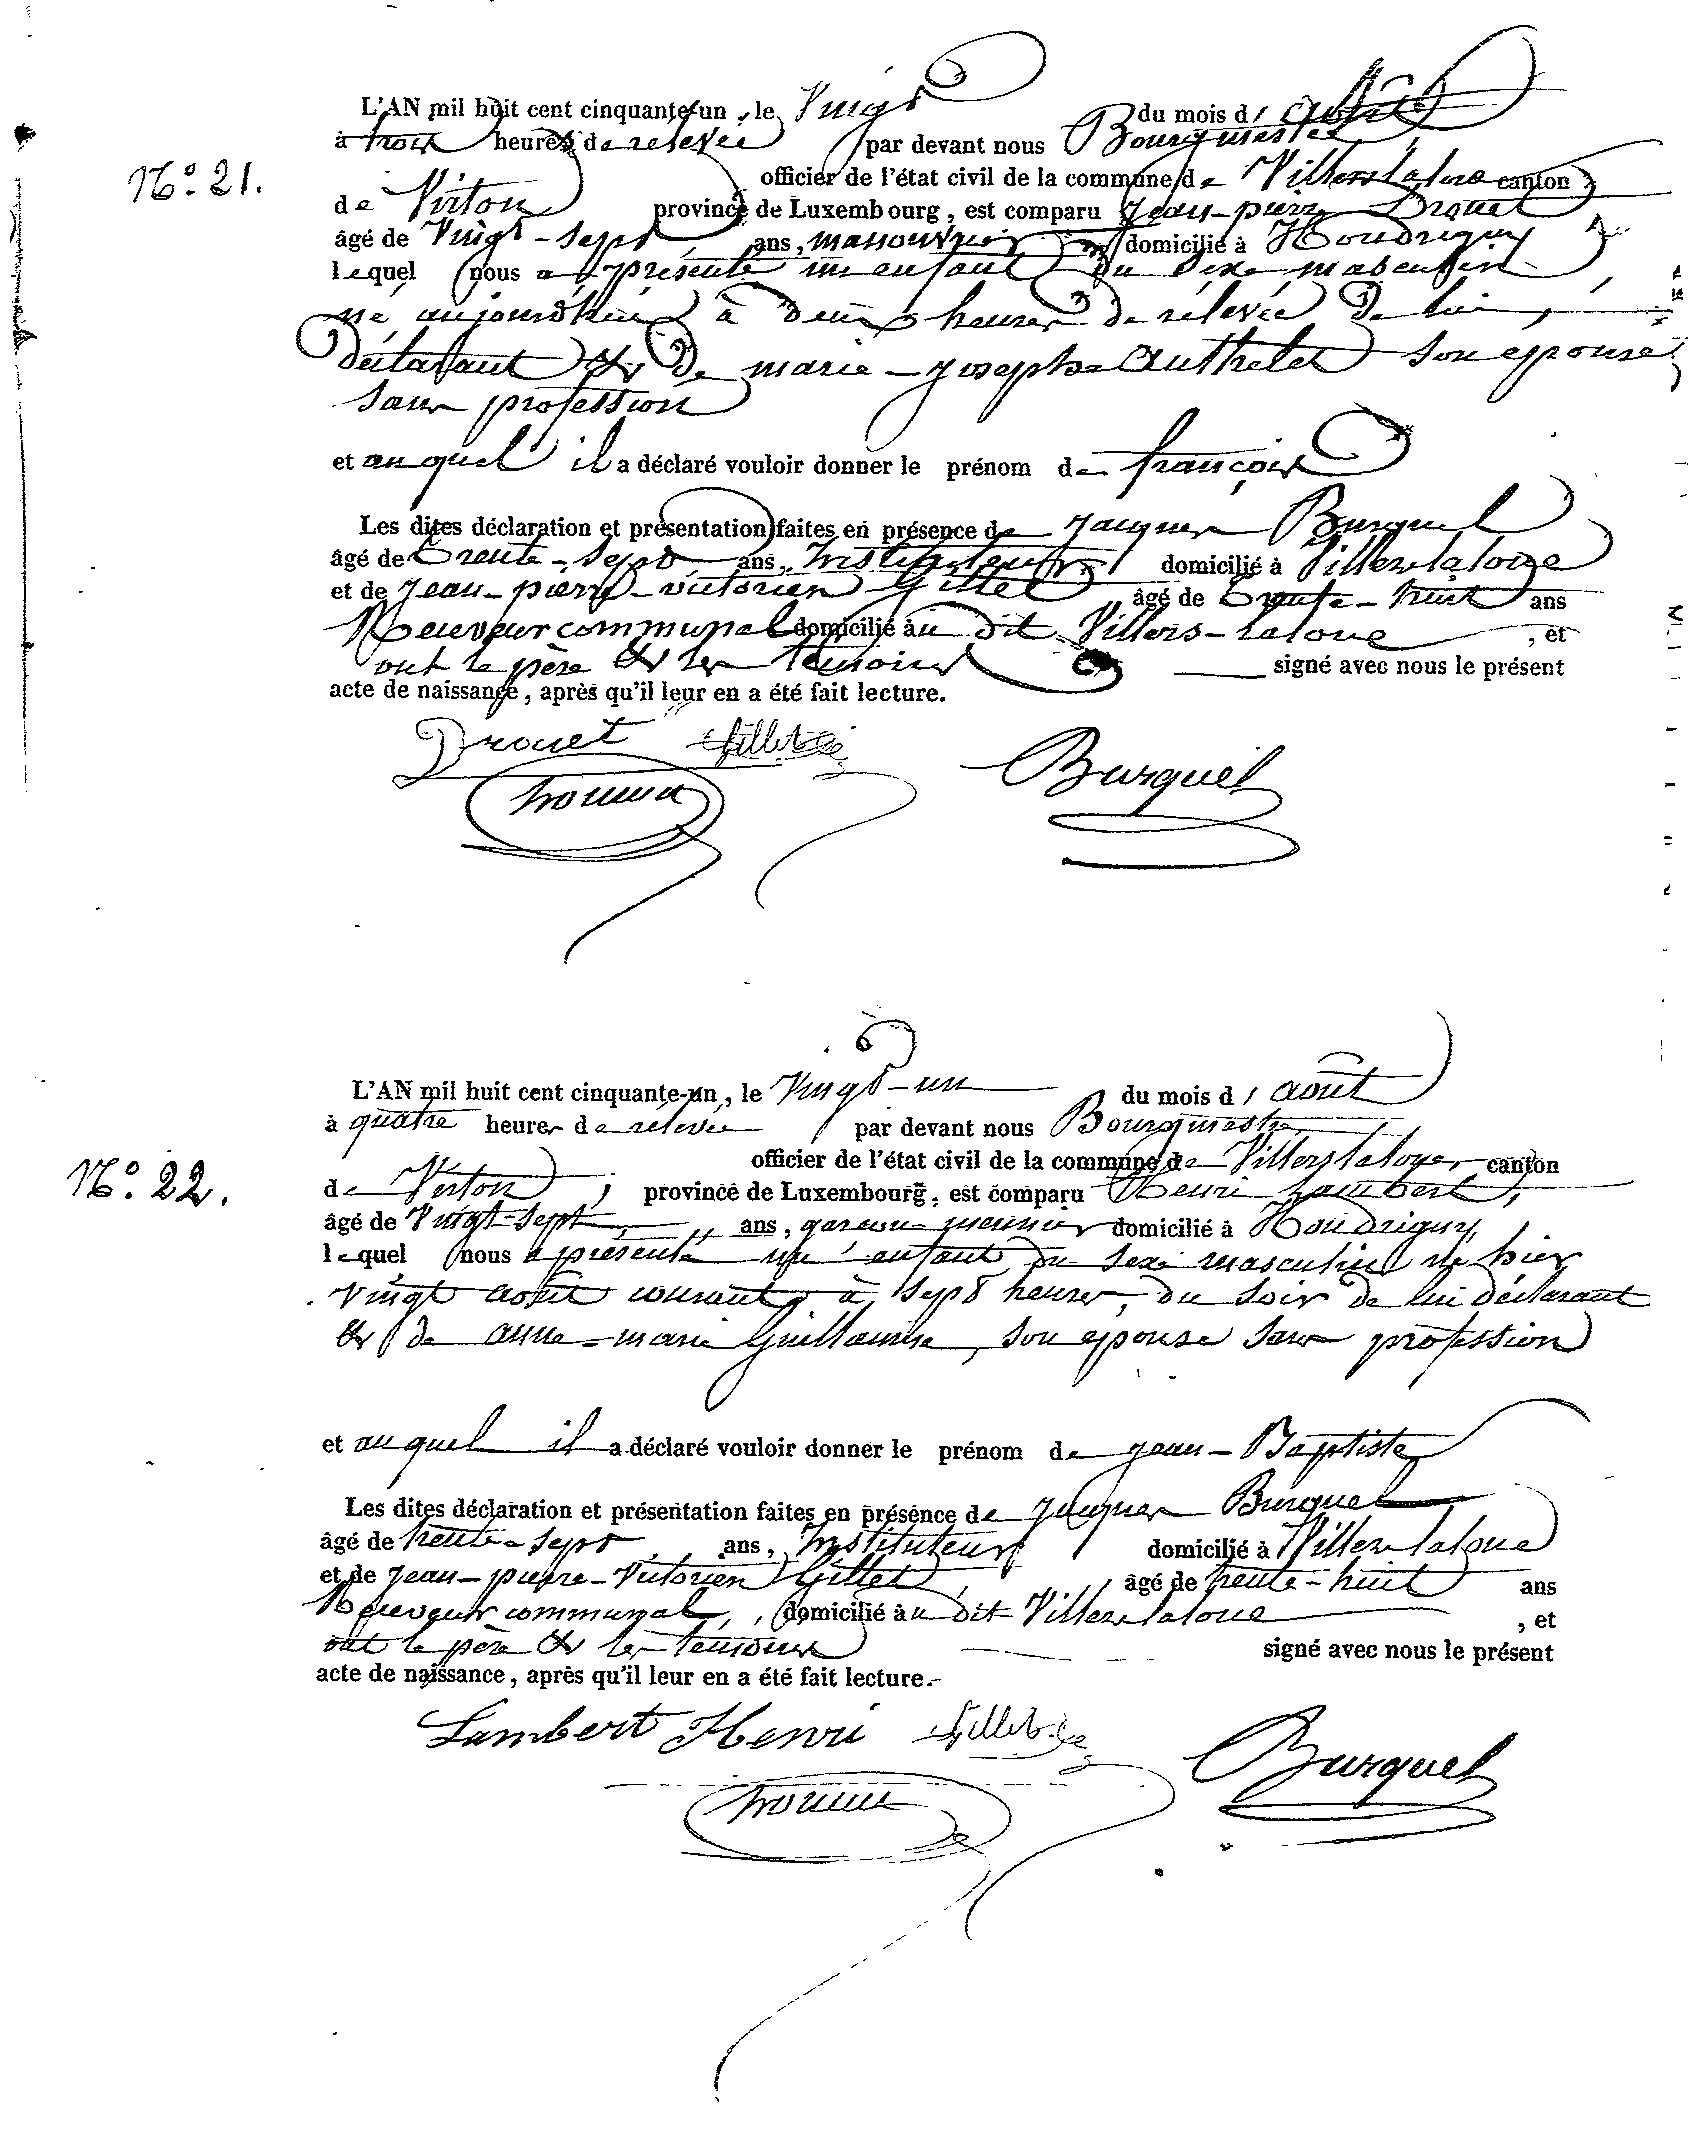 L'AN mil huit cent cinquante-un, le Vingt du mois d'
à trois heures de relevée par devant nous Bourgmestre
N.o 21.
officier de l'état civil de la commune de Villers la loue canton
de Virton province de Luxembourg, est comparu Jean-pierre Drouet
âgé de Vingt-sept ans, manouvrier domicilié à Houdrigny
lequel nous a présenté un enfant du sexe masculin
né aujourd'hui à deux heures de relevée de lui,
déclarant & de marie-josephe Authelet son epouse
sans profession
et auquel il a déclaré vouloir donner le prénom de françois
Les dites déclaration et présentation faites en présence de Jacques Burquel
âgé de Trente-sept ans, Instituteur domicilié à Villers la loue
et de Jean-pierre-victorien Gillet âgé de Trente-huit ans
Receveur communal domicilié au dit Villers-la loue, et
ont le père & les témoins signé avec nous le présent
acte de naissance, après qu'il leur en a été fait lecture.
Drouet Gillet Burquel
L'AN mil huit cent cinquante-un, le Vingt-un du mois d'août
à quatre heures de relevée par devant nous Bourgmestre
N.o 22.
officier de l'état civil de la commune de Villers la loue, canton
de Virton, province de Luxembourg, est comparu Henri Lambert,
âgé de Vingt-sept ans, garçon meunier domicilié à Houdrigny,
lequel nous a présenté un enfant du sexe masculin né hier
vingt août courant à sept heures, du soir de lui déclarant
& de anne-marie Guillaume, son epouse sans profession
et auquel il a déclaré vouloir donner le prénom de jean-Baptiste
Les dites déclaration et présentation faites en présence de Jacques Burquel
âgé de trente-sept ans, Instituteur domicilié à Villers la loue
et de Jean-pierre-Victorien Gillet, âgé de trente-huit ans
Receveur communal, domicilié au dit Villers la loue, et
ont le père & les témoins signé avec nous le présent
acte de naissance, après qu'il leur en a été fait lecture.
Lambert Henri Gillet Burquel